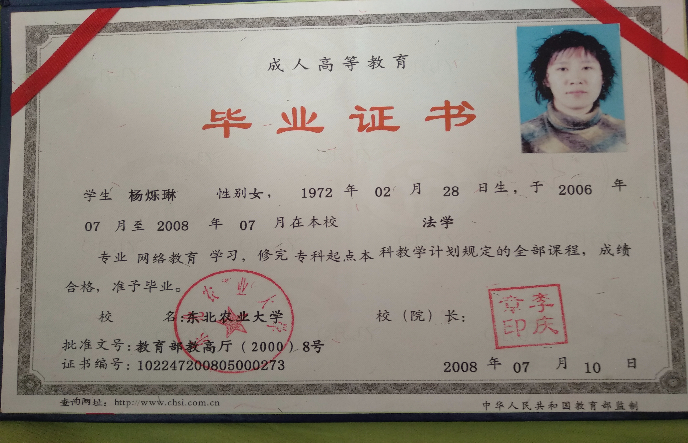 成人高等教育
毕业证书
学生 杨烁琳 性别女，1972 年 02 月 28 日生，于 2006 年
07 月至 2008 年 07 月在本校 法学
专业 网络教育 学习，修完 专科起点本 科教学计划规定的全部课程，成绩
合格，准予毕业。
校 名:东北农业大学 校（院）长：
李庆章印
批准文号：教育部教高厅（2000）8号
证书编号：102247200805000273
2008 年 07 月 10 日
查询网址：http://www.chsi.com.cn 中华人民共和国教育部监制